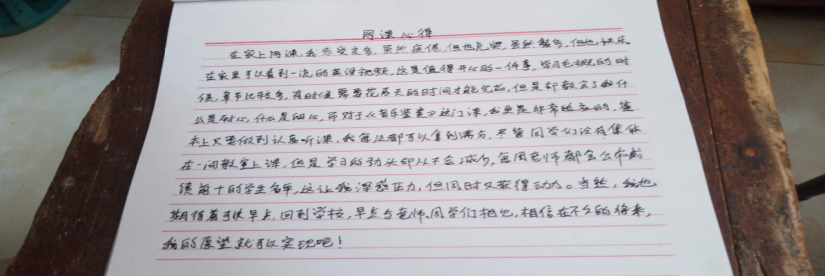 网课心得
在家上网课,我感受良多,虽然疲倦,但也充实,虽然繁多,但也快乐
在家里可以看到一流的英语视频,这是值得开心的一件事,学习毛概的时
候,章节比较多,有时候需要花两天的时间才能完成,但是却教会了我什
么是耐心,什么是细心,而对于《音乐鉴赏》这门课,我更是非常喜欢的,基
本上只要做到认真听课,我每次都可以拿到满分,尽管同学们没有集体
在一间教室上课,但是学习的劲头却从不会减少,每周老师都会公布成
绩前十的学生名单,这让我深感压力,但同时又获得动力。当然,我也
期待着可以早点回到学校,早点与老师、同学们相见,相信在不久的将来,
我的愿望就可以实现吧!